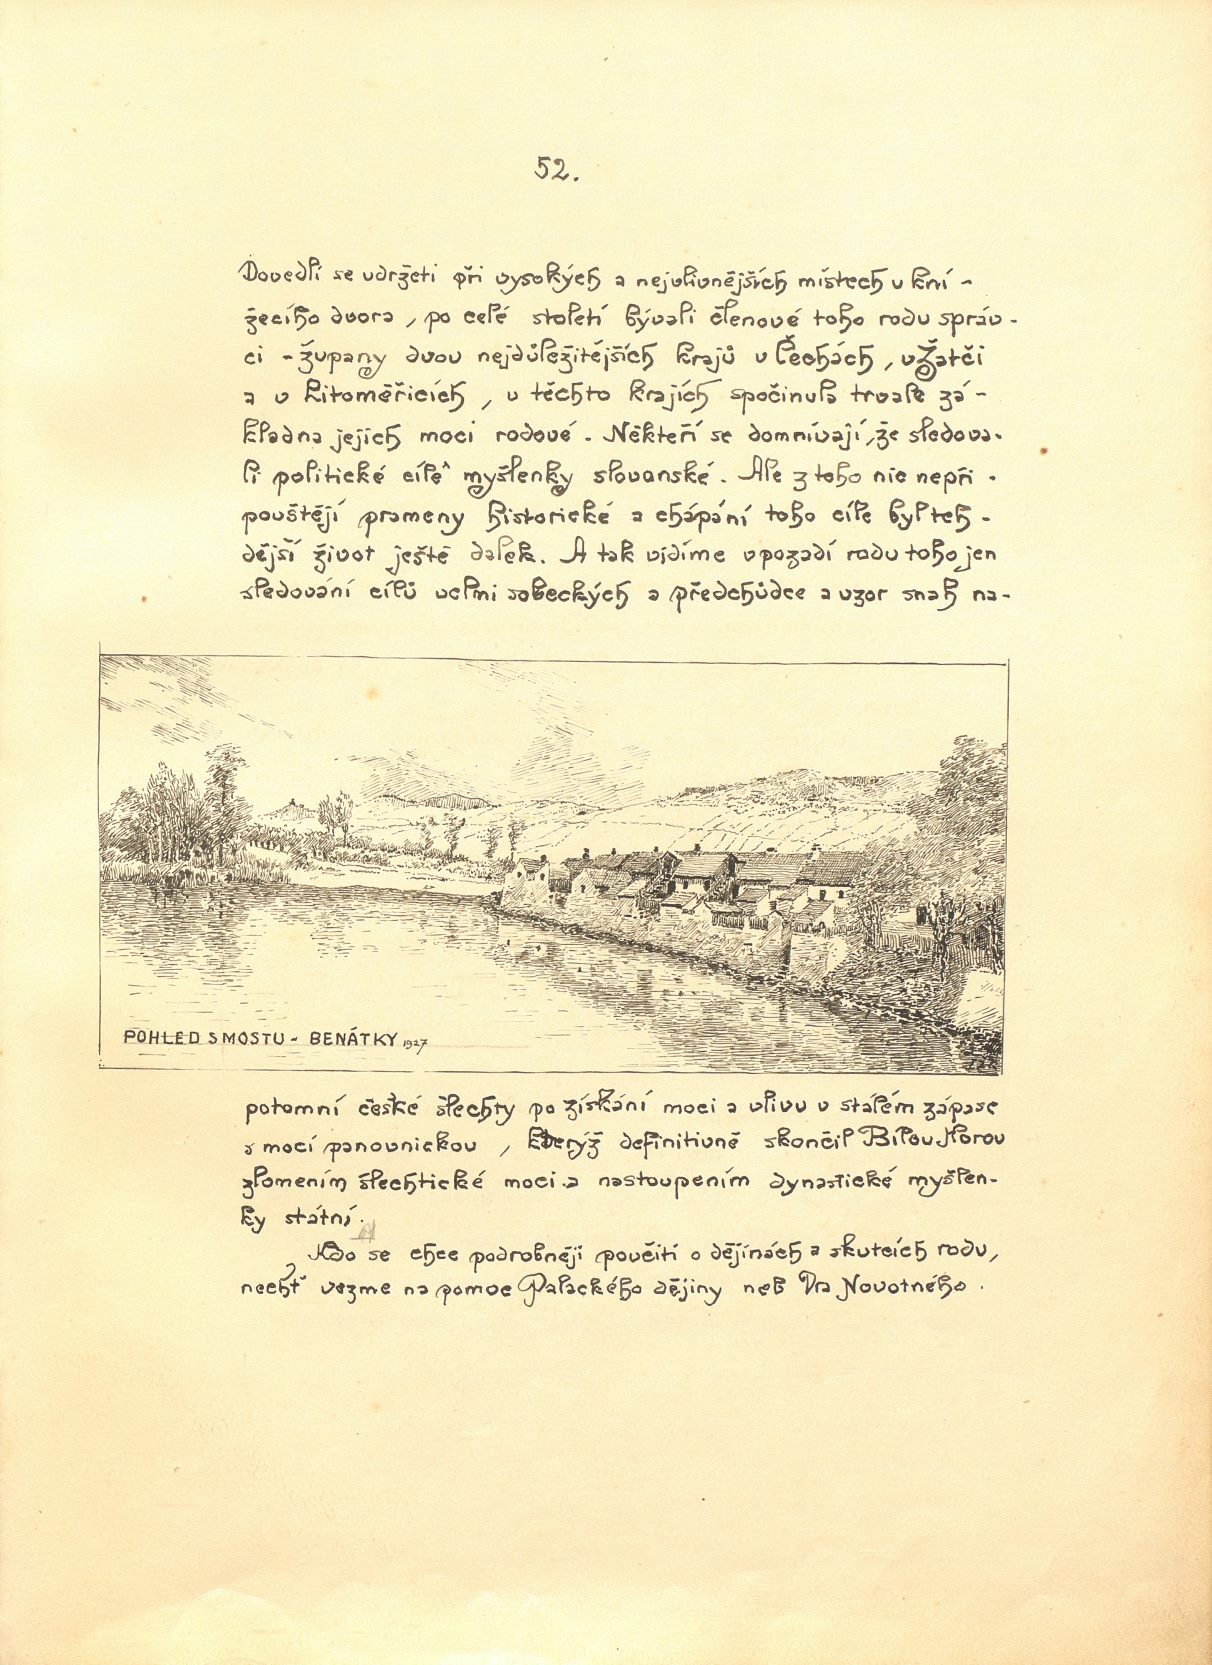 52.
Dovedli se udržeti při vysokých a nejvlivnějších místech u kní-
žecího dvora, po celé století bývali členové toho rodu správ-
ci - župany dvou nejdůležitějších krajů v Čechách, v Žatči
a v Litoměřicích, v těchto krajích spočinula trvale zá-
kladna jejich moci rodové. Někteří se domnívají, že sledova-
li politické cíle myšlenky slovanské. Ale z toho nic nepři-
pouštějí prameny historické a chápání toho cíle byl teh-
dější život ještě dalek. A tak vidíme v pozadí rodu toho jen
sledování cílů velmi sobeckých a předchůdce a vzor snah na-
POHLED S MOSTU - BENÁTKY 1927
potomní české šlechty po získání moci a vlivu v stálém zápase
s mocí panovnickou, kterýž definitivně skončil Bílou Horou
zlomením šlechtické moci a nastoupením dynastické myšlen-
ky státní.
Kdo se chce podrobněji poučiti o dějinách a skutcích rodu,
nechť vezme na pomoc Palackého dějiny neb Dra Novotného.